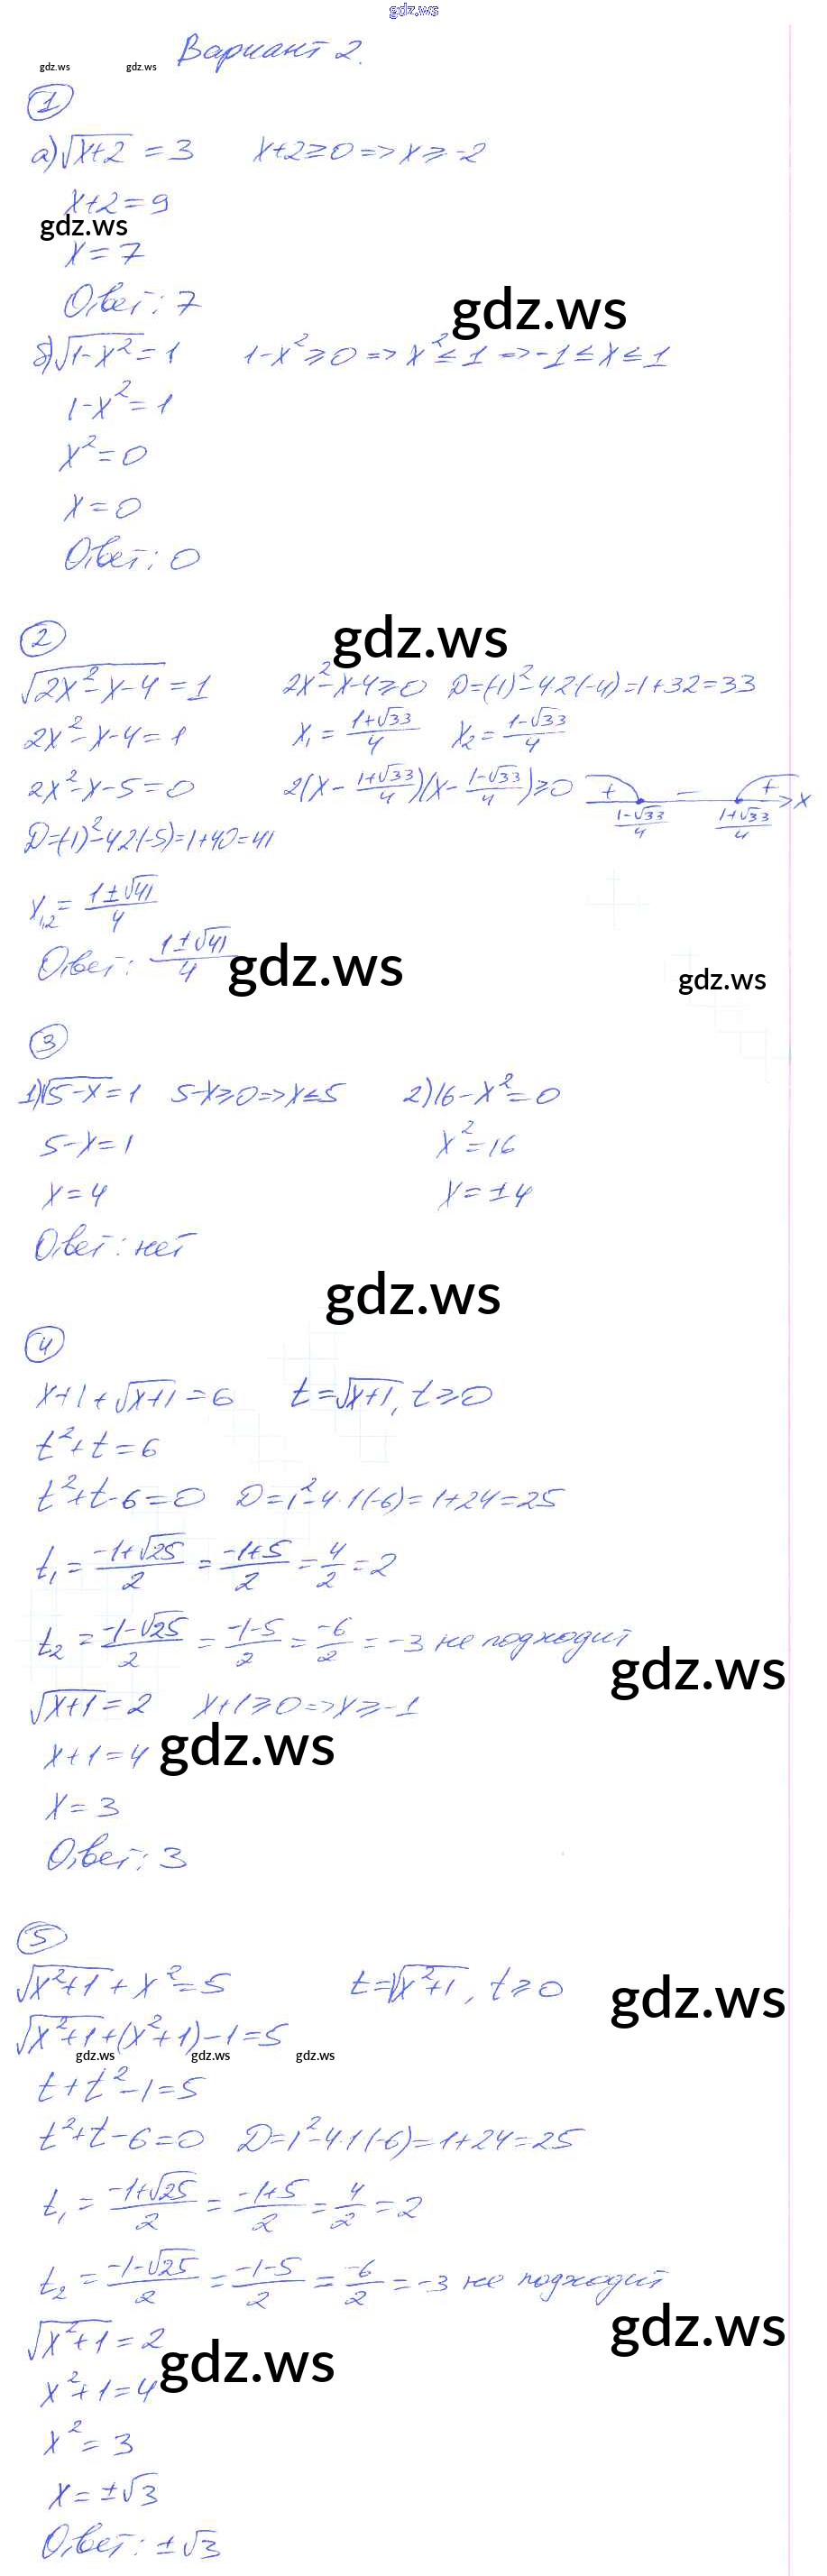 gdz.ws
Вариант 2.
gdz.ws gdz.ws
1
а) √(x+2) = 3 x+2≥0 => x≥-2
x+2=9
gdz.ws
x=7
Ответ: 7
gdz.ws
б) √(1-x²) = 1 1-x²≥0 => x²≤1 => -1≤x≤1
1-x²=1
x²=0
x=0
Ответ: 0
2
gdz.ws
√(2x²-x-4) = 1 2x²-x-4≥0 D=(-1)²-4·2(-4)=1+32=33
2x²-x-4=1 x₁ = (1+√33)/4 x₂ = (1-√33)/4
2x²-x-5=0 2(x - (1+√33)/4)(x - (1-√33)/4)≥0 + - + x
(1-√33)/4 (1+√33)/4
D=(-1)²-4·2(-5)=1+40=41
x₁,₂ = (1±√41)/4
Ответ: (1±√41)/4
gdz.ws gdz.ws
3
1) √(5-x) = 1 5-x≥0 => x≤5 2) 16-x²=0
5-x=1 x²=16
x=4 x=±4
Ответ: нет
gdz.ws
4
x+1+√(x+1) = 6 t=√(x+1), t≥0
t²+t=6
t²+t-6=0 D=1²-4·1(-6)=1+24=25
t₁ = (-1+√25)/2 = (-1+5)/2 = 4/2 = 2
t₂ = (-1-√25)/2 = (-1-5)/2 = -6/2 = -3 не подходит
gdz.ws
√(x+1) = 2 x+1≥0 => x≥-1
x+1=4 gdz.ws
x=3
Ответ: 3
5
√(x²+1) + x² = 5 t=√(x²+1), t≥0
gdz.ws
√(x²+1)+(x²+1)-1=5
gdz.ws gdz.ws gdz.ws
t+t²-1=5
t²+t-6=0 D=1²-4·1(-6)=1+24=25
t₁ = (-1+√25)/2 = (-1+5)/2 = 4/2 = 2
t₂ = (-1-√25)/2 = (-1-5)/2 = -6/2 = -3 не подходит
gdz.ws
√(x²+1) = 2
gdz.ws
x²+1=4
x²=3
x=±√3
Ответ: ±√3